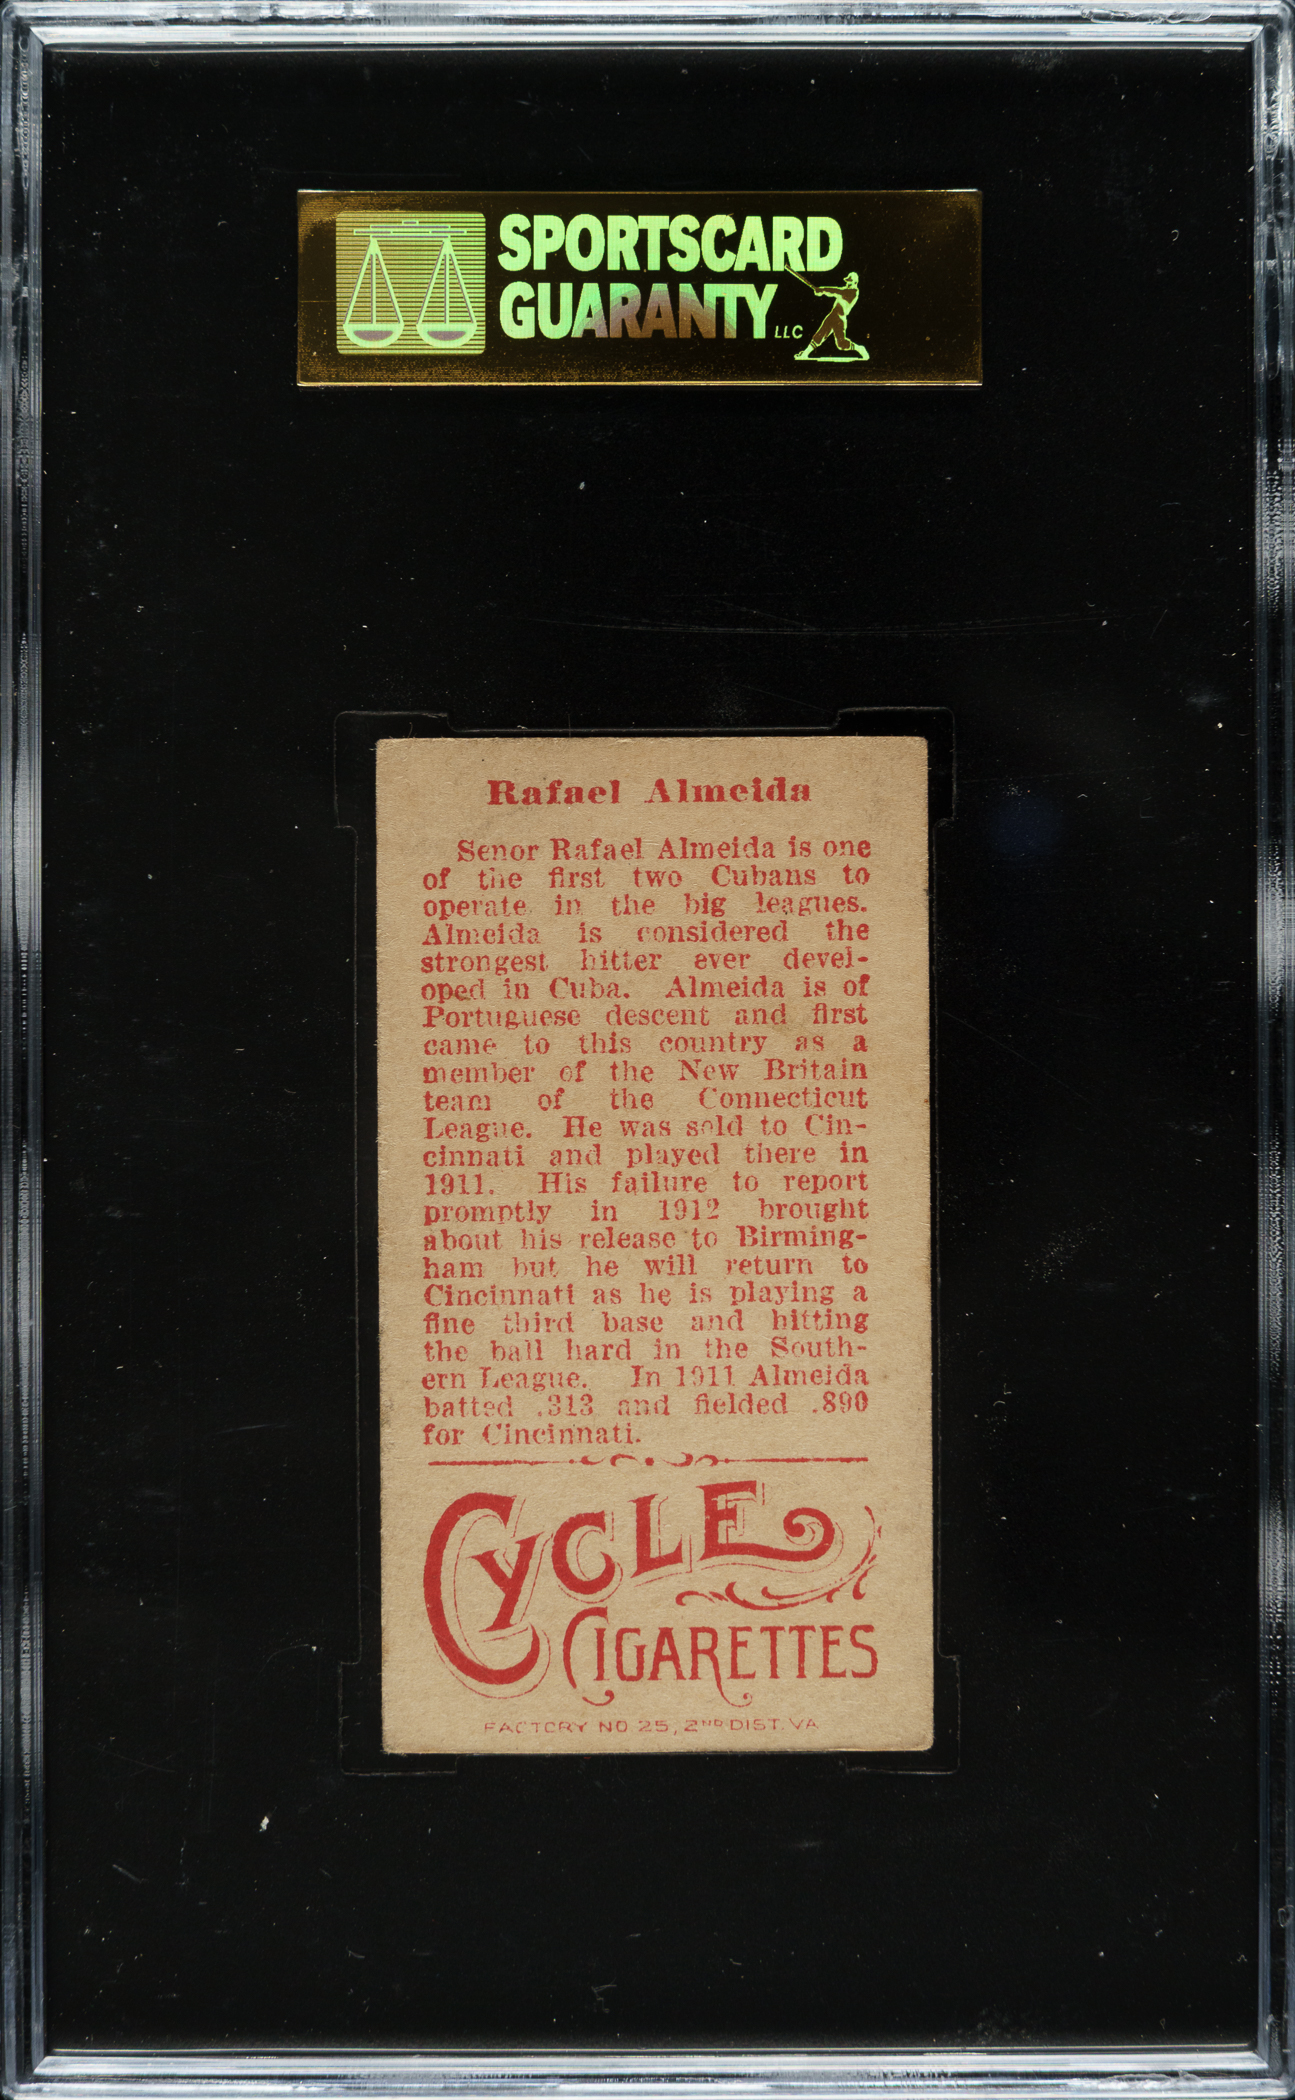 SPORTSCARD
GUARANTY LLC
Rafael Almeida
Senor Rafael Almeida is one
of the first two Cubans to
operate in the big leagues.
Almeida is considered the
strongest hitter ever devel-
oped in Cuba. Almeida is of
Portuguese descent and first
came to this country as a
member of the New Britain
team of the Connecticut
League. He was sold to Cin-
cinnati and played there in
1911. His failure to report
promptly in 1912 brought
about his release to Birming-
ham but he will return to
Cincinnati as he is playing a
fine third base and hitting
the ball hard in the South-
ern League. In 1911 Almeida
batted .313 and fielded .890
for Cincinnati.
CYCLE
CIGARETTES
FACTORY NO 25, 2ND DIST. VA